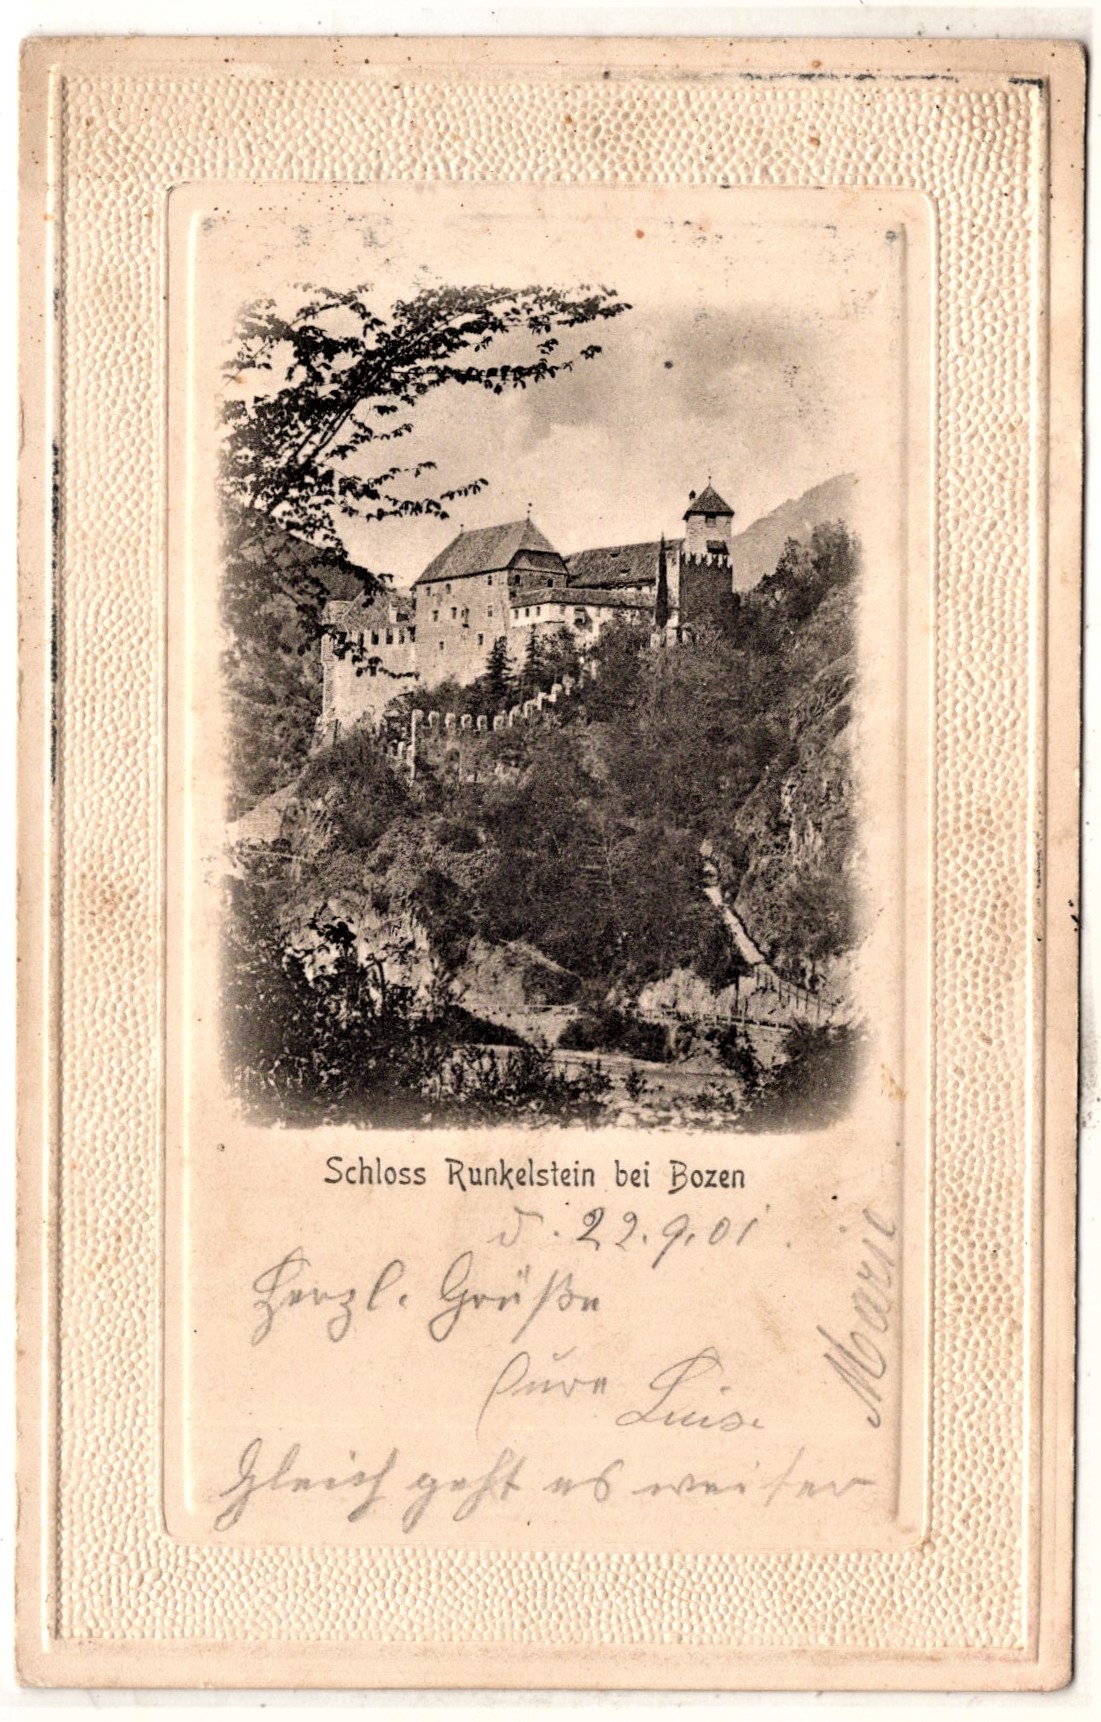 Schloss Runkelstein bei Bozen
d. 22.9.01.
Herzl. Grüße
Eure Luise
Marie
Gleich geht es weiter